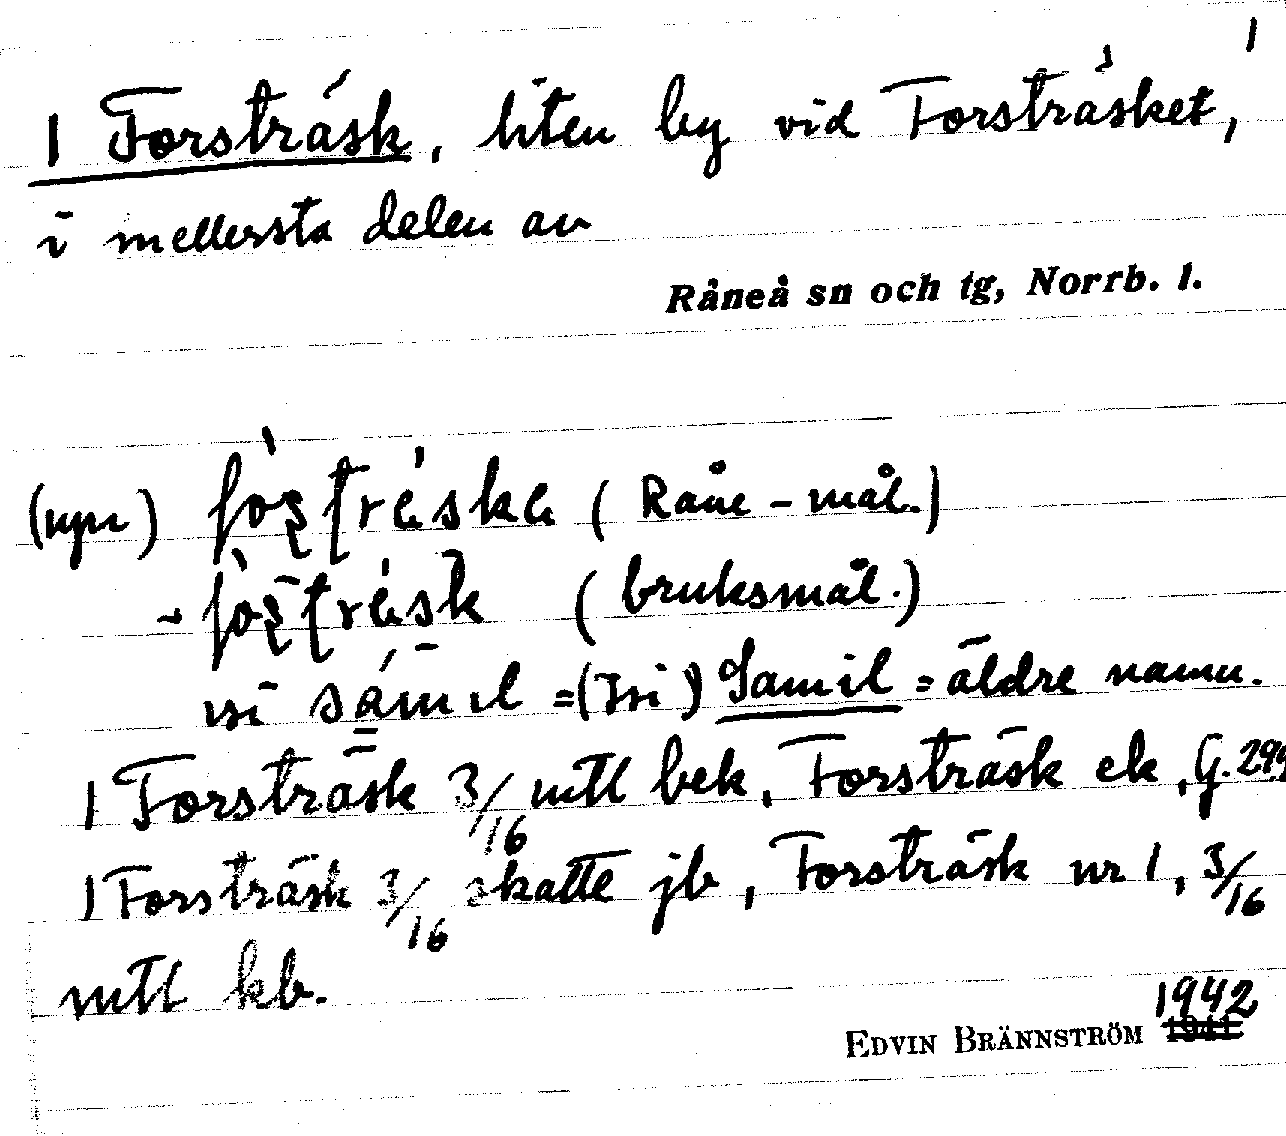 1
1 Forsträsk, liten by vid Forsträsket,
i mellersta delen av
Råneå sn och tg, Norrb. l.
(npr) (Råne-mål.)
(bruksmål.)
= äldre namn.
1 Forsträsk 3/16 mtl bek, Forsträsk ek, G. 294
1 Forsträsk 3/16 skatte jb, Forsträsk nr 1, 3/16
mtl kb.
1942
EDVIN BRÄNNSTRÖM 1941